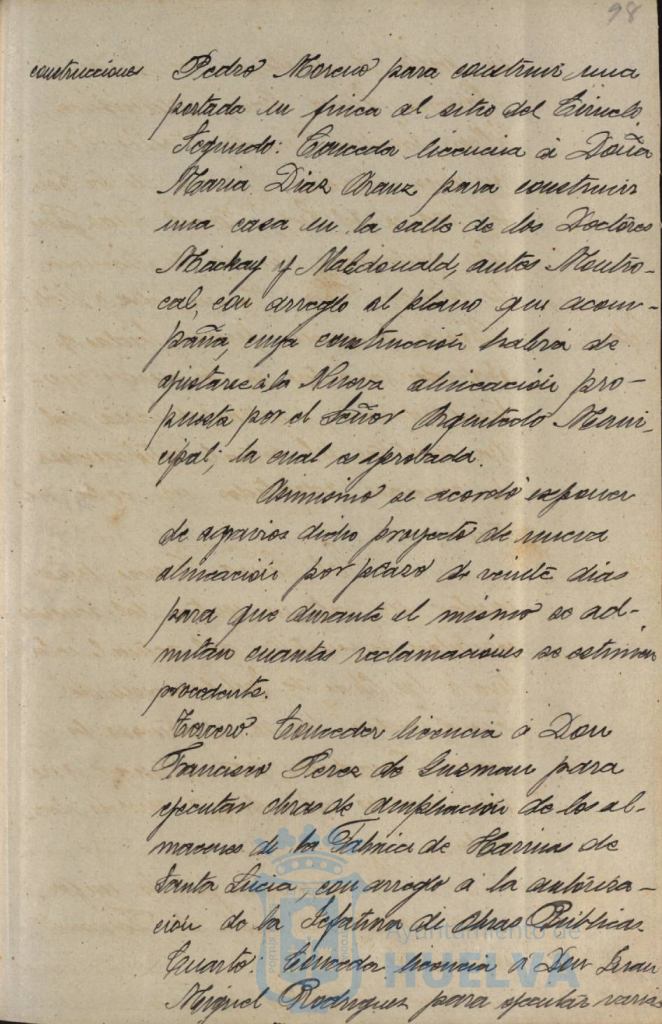 98
construcciones
Pedro Moreno para construir una
portada en finca al sitio del Ciruelo.
Segundo: Conceder licencia á Doña
Maria Diaz Aranz para construir
una casa en la calle de los Doctores
Mackay y Macdonald, antes Montro-
cal, con arreglo al plano que acom-
paña, cuya construcción habrá de
ajustarse á la Nueva alineación pro-
puesta por el Señor Arquitecto Muni-
cipal, la cual es aprobada.
Asimismo se acordó exponer
de agravios dicho proyecto de nueva
alineación por plazo de veinte dias
para que durante el mismo se ad-
mitan cuantas reclamaciones se estimen
procedente.
Tercero. Conceder licencia á Don
Francisco Perez de Guzman para
ejecutar obras de ampliación de los al-
macenes de la Fabrica de Harinas de
Santa Lucia, con arreglo á la autoriza-
ción de la Jefatura de Obras Públicas.
Cuarto: Conceder licencia á Don Juan
Miguel Rodriguez para ejecutar varias
Ayuntamiento de
HUELVA